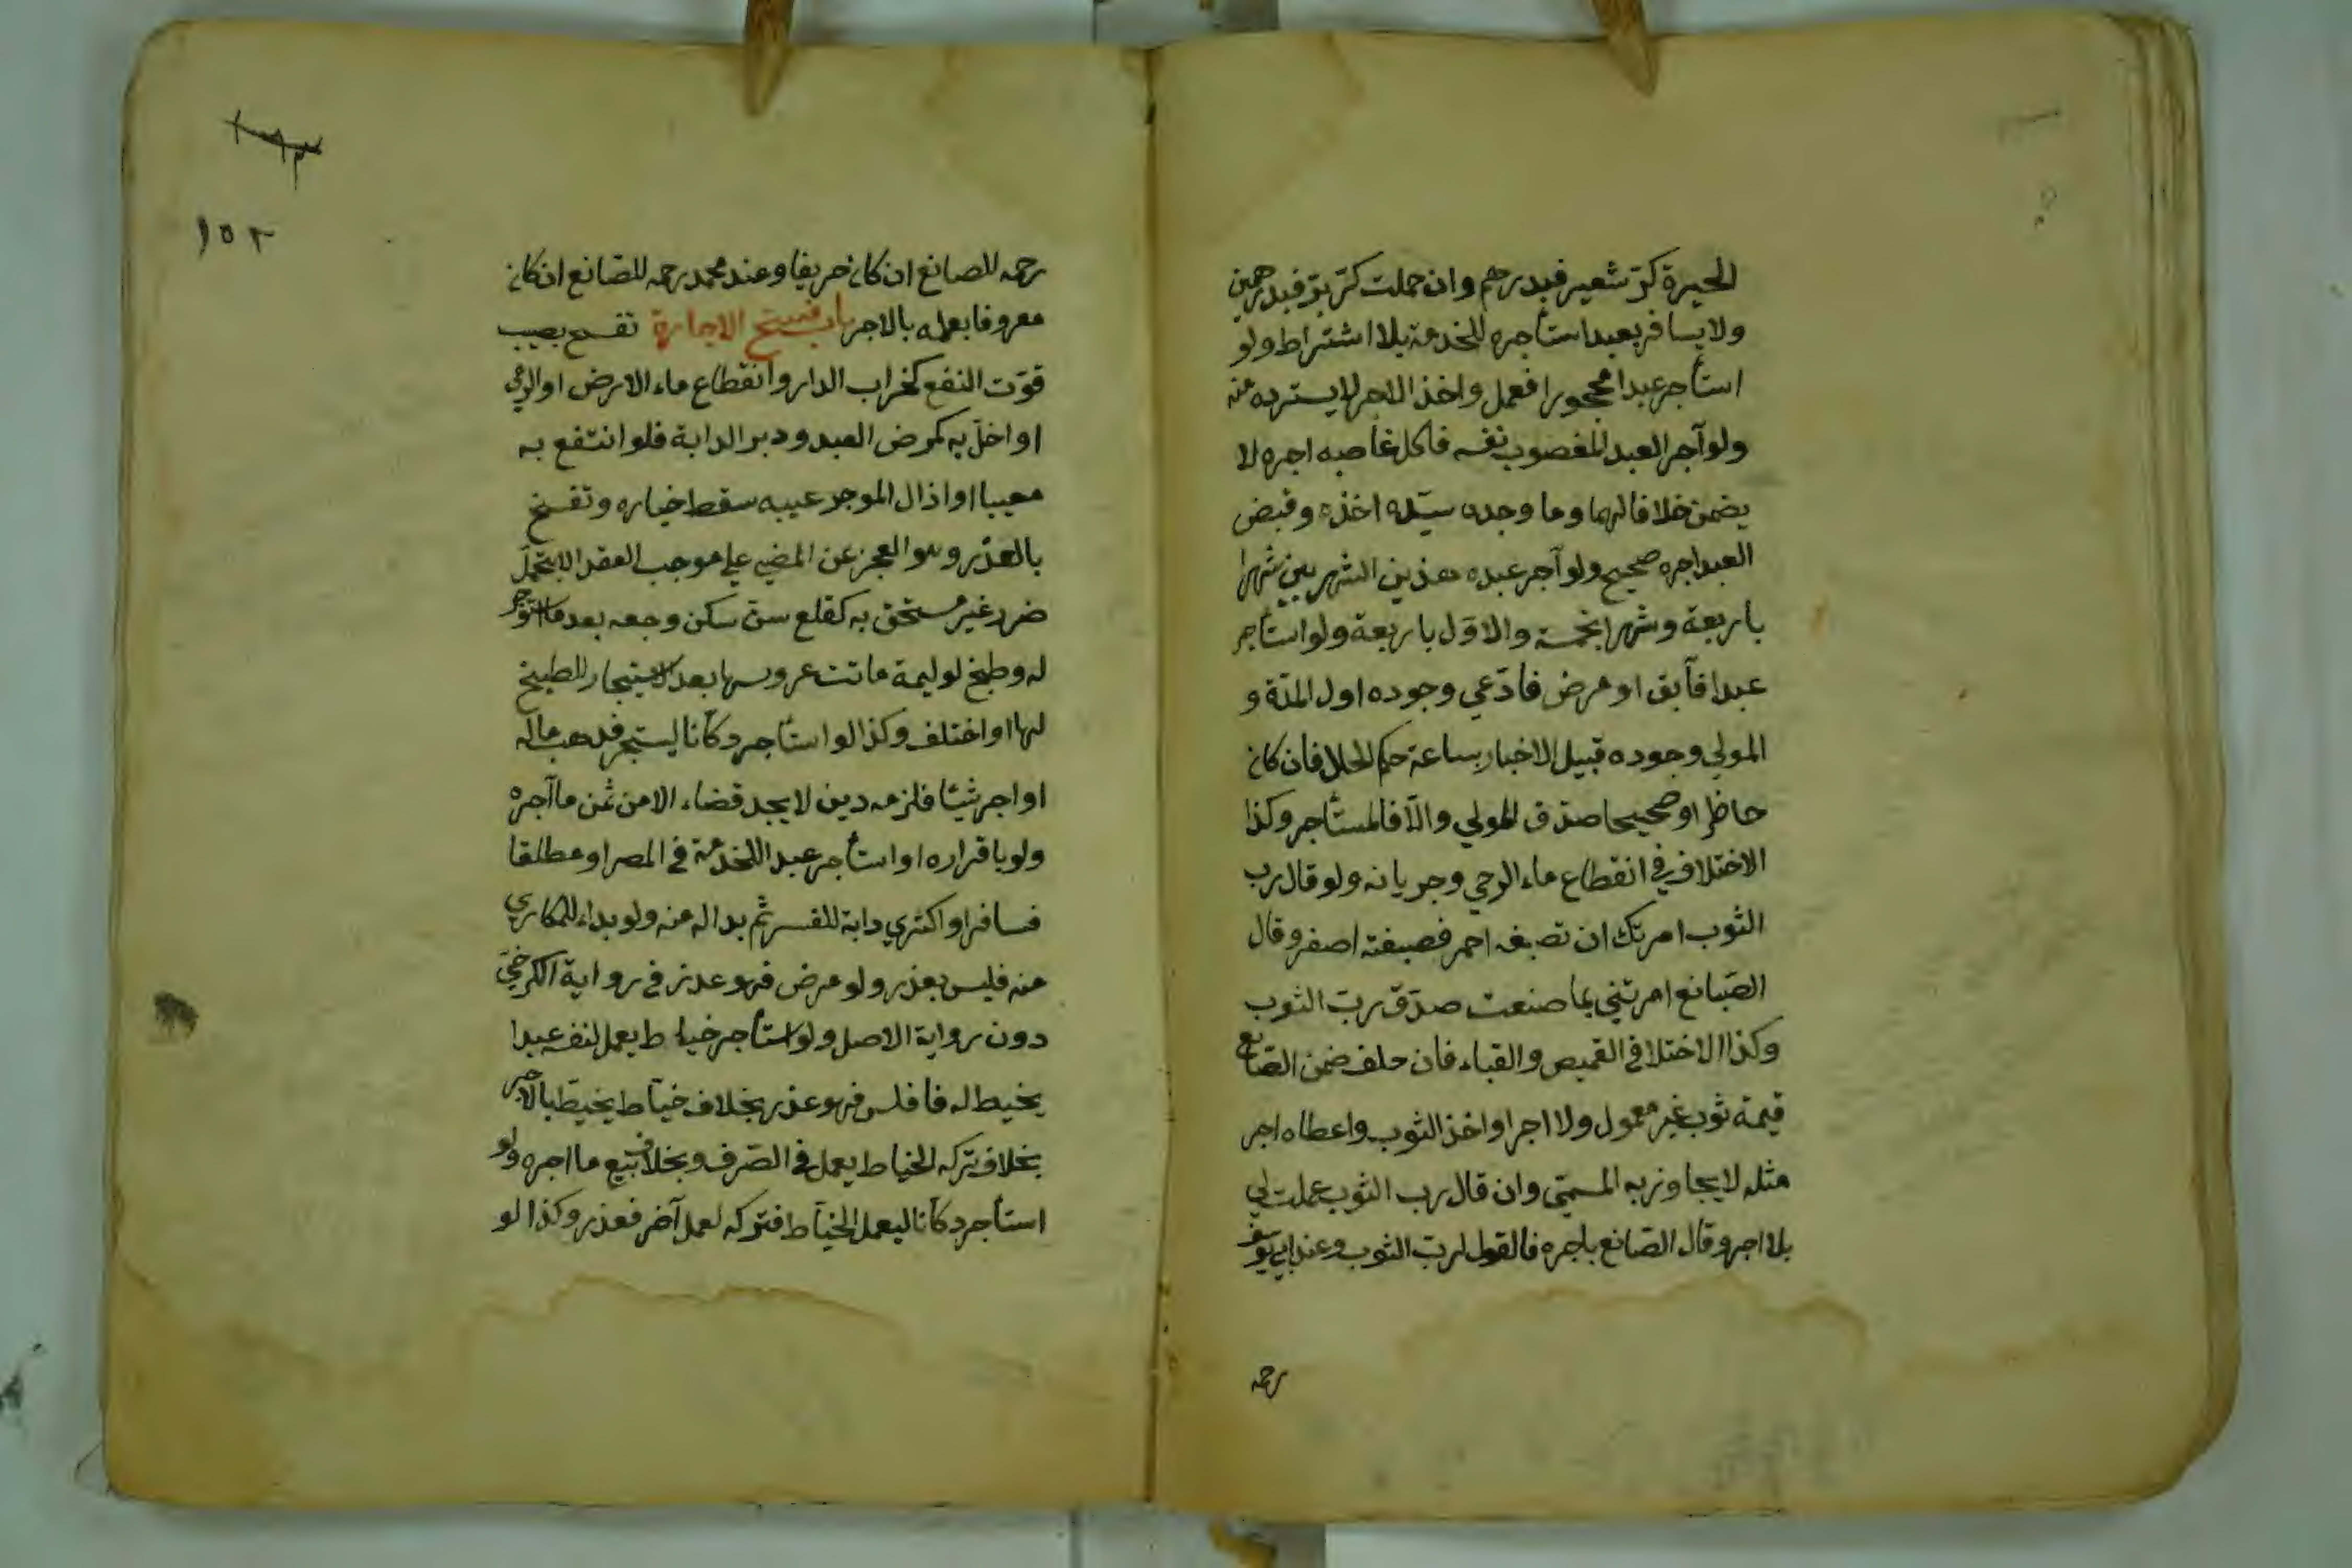 الحيرة كرّ شعير فبدرهم وان حملت كرّ برّ فبدرهمين
ولا يسافر بعبد استأجره للخدمة بلا اشتراط ولو
استأجر عبدا محجورا فعمل واخذ الاجر لا يسترده منه
ولو آجر العبد المغصوب نفسه فاكل غاصبه اجره لا
يضمن خلافا لهما وما وجده سيّده اخذه وقبض
العبد اجره صحيح ولو آجر عبده هذين الشهرين شهرا
باربعة وشهرا بخمسة والاوّل باربعة ولو استأجر
عبدا فآبق او مرض فادّعي وجوده اول المدّة و
المولي وجوده قبيل الاخبار بساعة حكم الحال فان كان
حاضرا او صحيحا صدّق المولي والّا فالمستأجر وكذا
الاختلاف في انقطاع ماء الرحي وجريانه ولو قال رب
الثوب امرتك ان تصبغه احمر فصبغته اصفر وقال
الصّانع امرتني بما صنعت صدّق ربّ الثوب
وكذا الاختلا في القميص والقباء فان حلف ضمن الصّانع
قيمة ثوب غير معمول ولا اجر او اخذ الثوب واعطاه اجر
مثله لا يجاوز به المسمّي وان قال رب الثوب عملت لي
بلا اجر وقال الصّانع باجره فالقول لربّ الثوب وعند ابي يوسف
رحمه
١٩٣
١٥٢
رحمه للصانع ان كان حريفا وعند محمد رحمه للصّانع ان كان
معروفا بعمله بالاجر باب فسخ الاجارة تفسخ بعيب
فوّت النفع كخراب الدار وانقطاع ماء الارض او الرحي
او اخلّ به كمرض العبد ودبر الدابة فلو انتفع به
معيبا او اذال الموجر عيبه سقط خياره وتفسخ
بالعذر وهو العجز عن المضي علي موجب العقد الا بتحمّل
ضرر غير مستحق به كقلع سنّ سكن وجعه بعد ما استوجر
له وطبخ لوليمة ماتت عروسها بعد الاستيجار للطبخ
لها او اختلف وكذا لو استأجر دكّانا ليتجر فذهب ماله
او اجر شيئا فلزمه دين لا يجد قضاء الا من ثمن ما آجره
ولو باقراره او استأجر عبدا للخدمة في المصر او مطلقا
فسافر او اكتري دابة للسفر ثم بدا له منه ولو بداء للمكاري
منه فليس بعذر ولو مرض فهو عذر في رواية الكرخيّ
دون رواية الاصل ولو استأجر خياط يعمل لنفسه عبدا
يخيط له فافلس فهو عذر بخلاف خيّاط يخيّط بالاجر
بخلاف تركه الخياط يعمل في الصّرف وبخلاف بيع ما اجره ولو
استأجر دكّانا ليعمل الخيّاط فتركه لعمل آخر فعذر وكذا لو